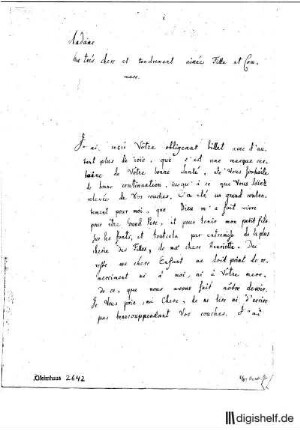 Madame
ma très chere et tendrement aimée Fille et Com-
mere.
J'ai reçû Votre obligeant billet avec d'au-
tant plus de joie, que c'est une marque cer-
taine de Votre bonne santé, je Vous souhaite
de bonne continuation, jusqu'à ce que Vous soiez
relevée de Vos couches, c'a été un grand conten-
tement pour moi, que Dieu m'a fait vivre
pour être Grand Pere, et pour tenir mon petit fils
sur les fonts, et tout cela par entremise de la plus
cherie des Filles, de ma chere Henriette. Du
reste ma chere Enfant ne doit point de re-
merciment ni à moi, ni à Votre mere,
de ce, que nous avons fait nôtre devoir.
Je Vous prie, ma Chere, de ne lire ni d'ecrire
pas beaucoup pendant Vos couches. J'ai
Gleimhaus 2642
digishelf.de